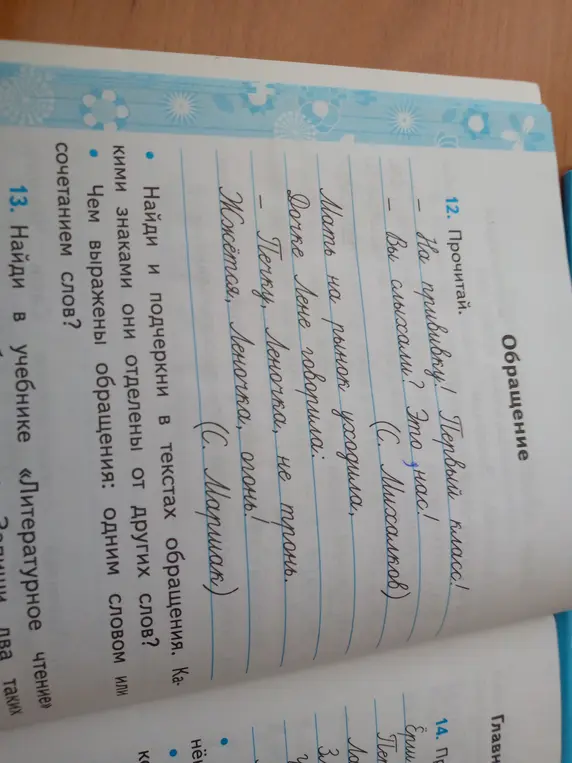 Обращение
12. Прочитай.
– На прививку! Первый класс!
– Вы слыхали? Это нас!
(С. Михалков)
Мать на рынок уходила,
Дочке Лене говорила:
– Печку, Леночка, не тронь.
Жжётся, Леночка, огонь!
(С. Маршак)
• Найди и подчеркни в текстах обращения. Ка-
кими знаками они отделены от других слов?
• Чем выражены обращения: одним словом или
сочетанием слов?
13. Найди в учебнике «Литературное чтение»
два таких
Главн
14. П
Ёрши